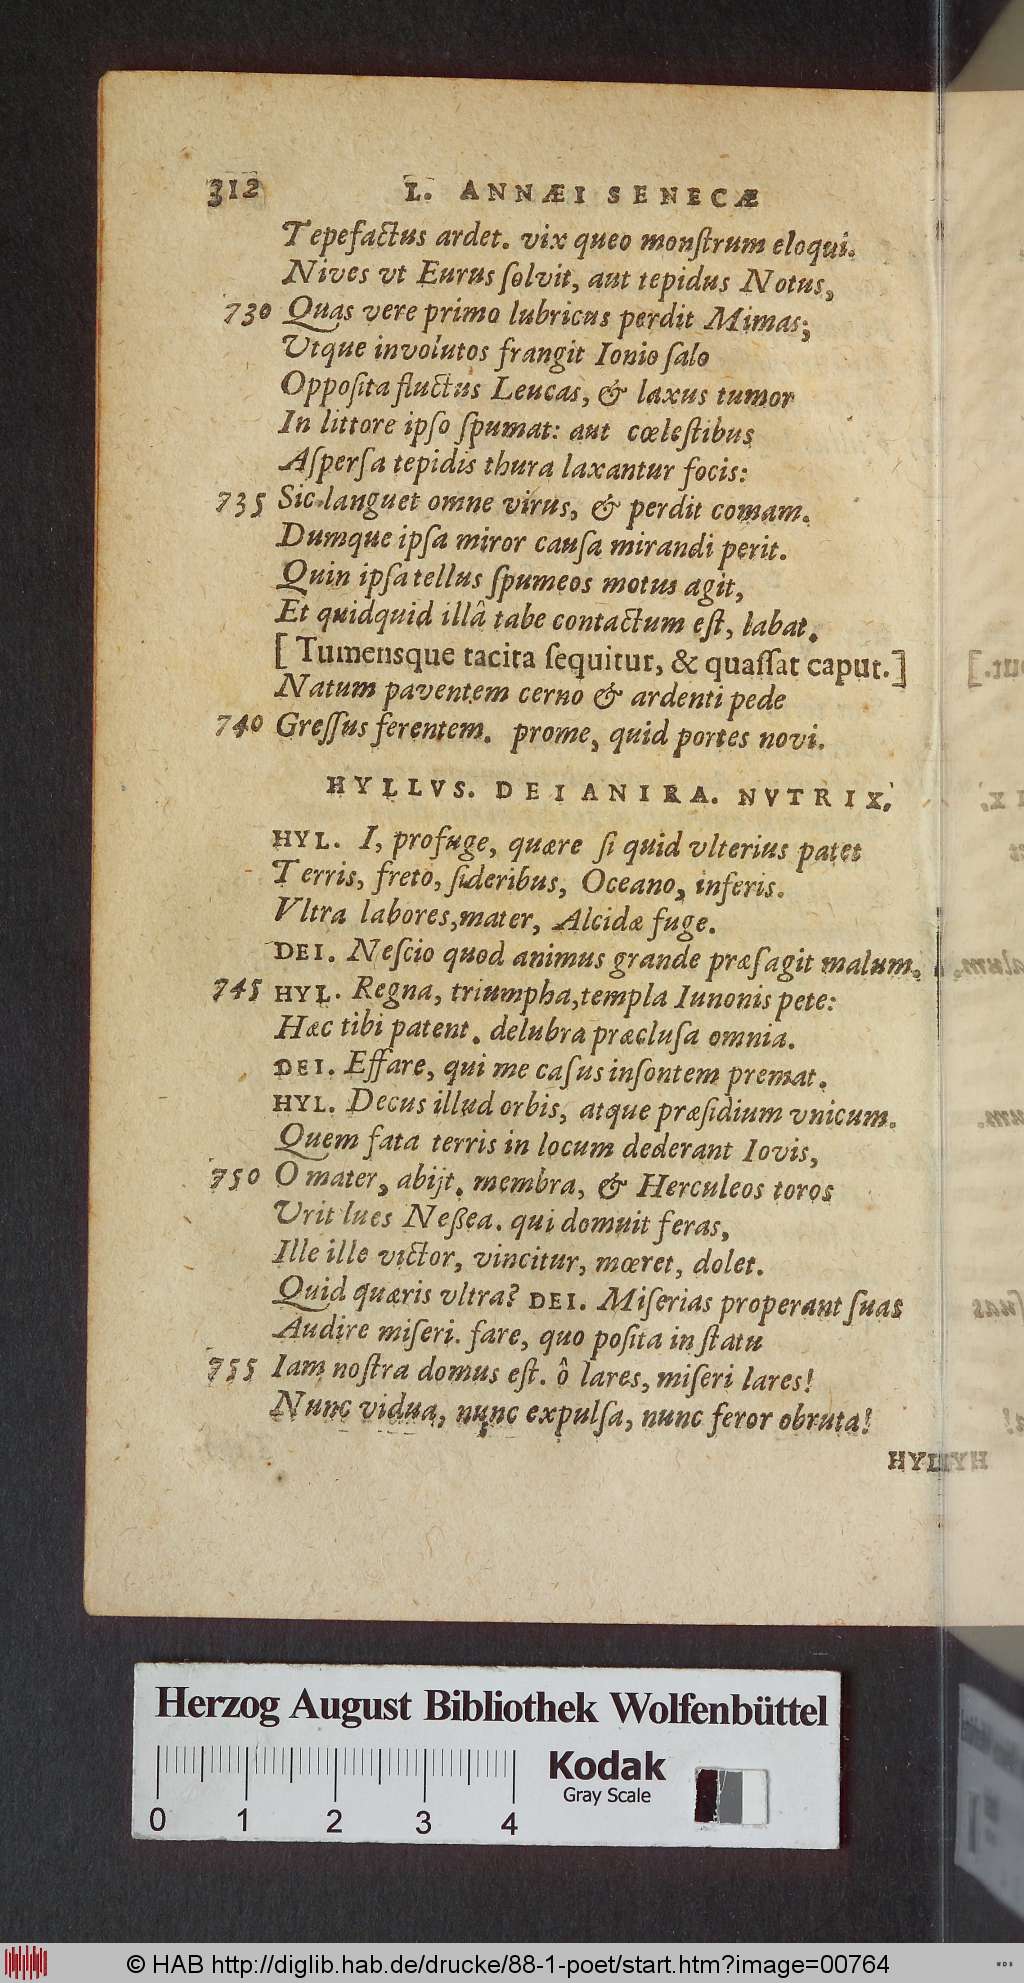 312 L. ANNÆI SENECÆ
Tepefactus ardet. vix queo monſtrum eloqui.
Nives vt Eurus ſolvit, aut tepidus Notus,
730 Quas vere primo lubricus perdit Mimas;
Vtque involutos frangit Ionio ſalo
Oppoſita fluctus Leucas, & laxus tumor
In littore ipſo ſpumat: aut cœleſtibus
Aſperſa tepidis thura laxantur focis:
735 Sic languet omne virus, & perdit comam.
Dumque ipſa miror cauſa mirandi perit.
Quin ipſa tellus ſpumeos motus agit,
Et quidquid illâ tabe contactum eſt, labat.
[Tumensque tacita ſequitur, & quaſſat caput.]
Natum paventem cerno & ardenti pede
740 Greſſus ferentem. prome, quid portes novi.
HYLLVS. DEIANIRA. NVTRIX.
HYL. I, profuge, quære ſi quid vlterius patet
Terris, freto, ſideribus, Oceano, inferis.
Vltra labores, mater, Alcidæ fuge.
DEI. Neſcio quod animus grande præſagit malum.
745 HYL. Regna, triumpha, templa Iunonis pete:
Hæc tibi patent. delubra præcluſa omnia.
DEI. Effare, qui me caſus inſontem premat.
HYL. Decus illud orbis, atque præſidium vnicum.
Quem fata terris in locum dederant Iovis,
750 O mater, abijt. membra, & Herculeos toros
Vrit lues Neßea. qui domuit feras,
Ille ille victor, vincitur, mœret, dolet.
Quid quæris vltra? DEI. Miſerias properant ſuas
Audire miſeri. fare, quo poſita in ſtatu
755 Iam noſtra domus eſt. ô lares, miſeri lares!
Nunc vidua, nunc expulſa, nunc feror obruta!
Herzog August Bibliothek Wolfenbüttel
Kodak
Gray Scale
0 1 2 3 4
© HAB http://diglib.hab.de/drucke/88-1-poet/start.htm?image=00764